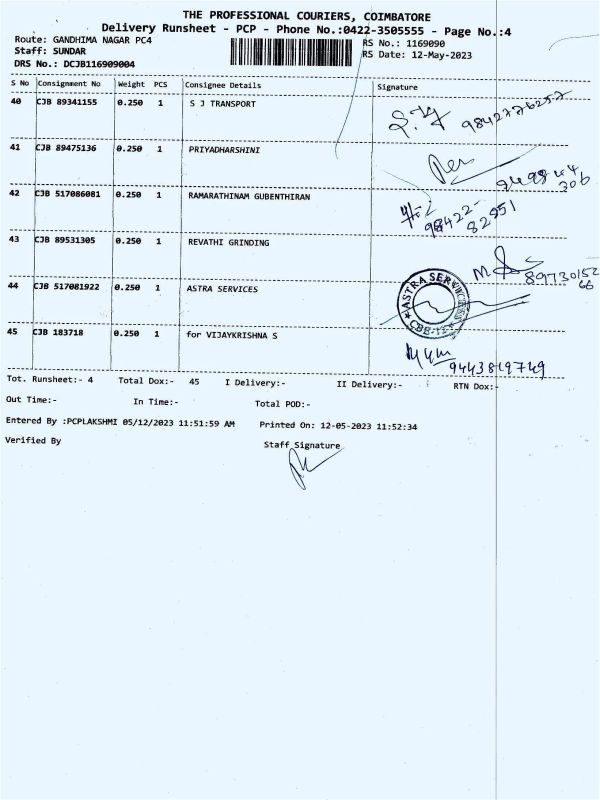 THE PROFESSIONAL COURIERS, COIMBATORE
Delivery Runsheet - PCP - Phone No.:0422-3505555 - Page No.:4
Route: GANDHIMA NAGAR PC4 RS No.: 1169090
Staff: SUNDAR RS Date: 12-May-2023
DRS No.: DCJB116909004
S No Consignment No Weight PCS Consignee Details Signature
40 CJB 89341155 0.250 1 S J TRANSPORT
9842776257
41 CJB 89475136 0.250 1 PRIYADHARSHINI
42 CJB 517086081 0.250 1 RAMARATHINAM GUBENTHIRAN
98422-
82551
43 CJB 89531305 0.250 1 REVATHI GRINDING
89730152
66
44 CJB 517081922 0.250 1 ASTRA SERVICES
45 CJB 183718 0.250 1 for VIJAYKRISHNA S
9443819749
Tot. Runsheet:- 4 Total Dox:- 45 I Delivery:- II Delivery:- RTN Dox:-
Out Time:- In Time:- Total POD:-
Entered By :PCPLAKSHMI 05/12/2023 11:51:59 AM Printed On: 12-05-2023 11:52:34
Verified By Staff Signature